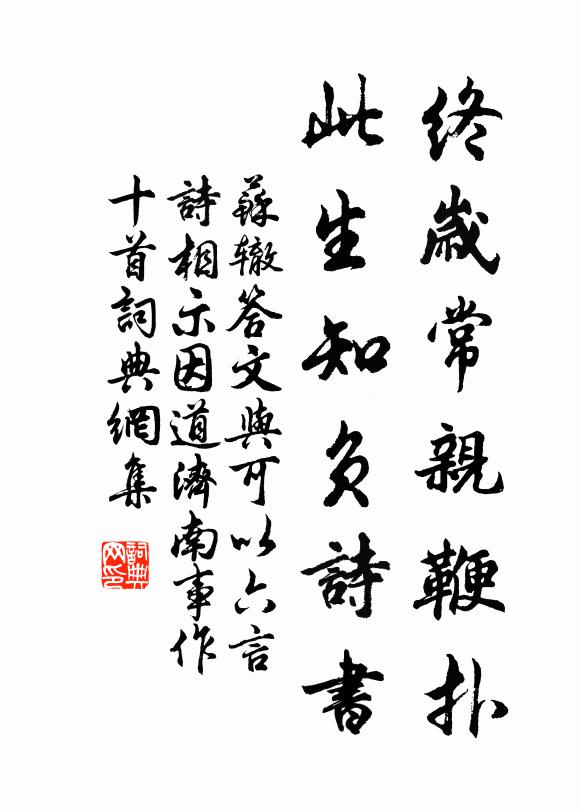 終歲常親鞭扑
此生知負詩書
蘇轍答文與可以六言
詩相示因道濟南事作
十首詞典網集
詞典
网印